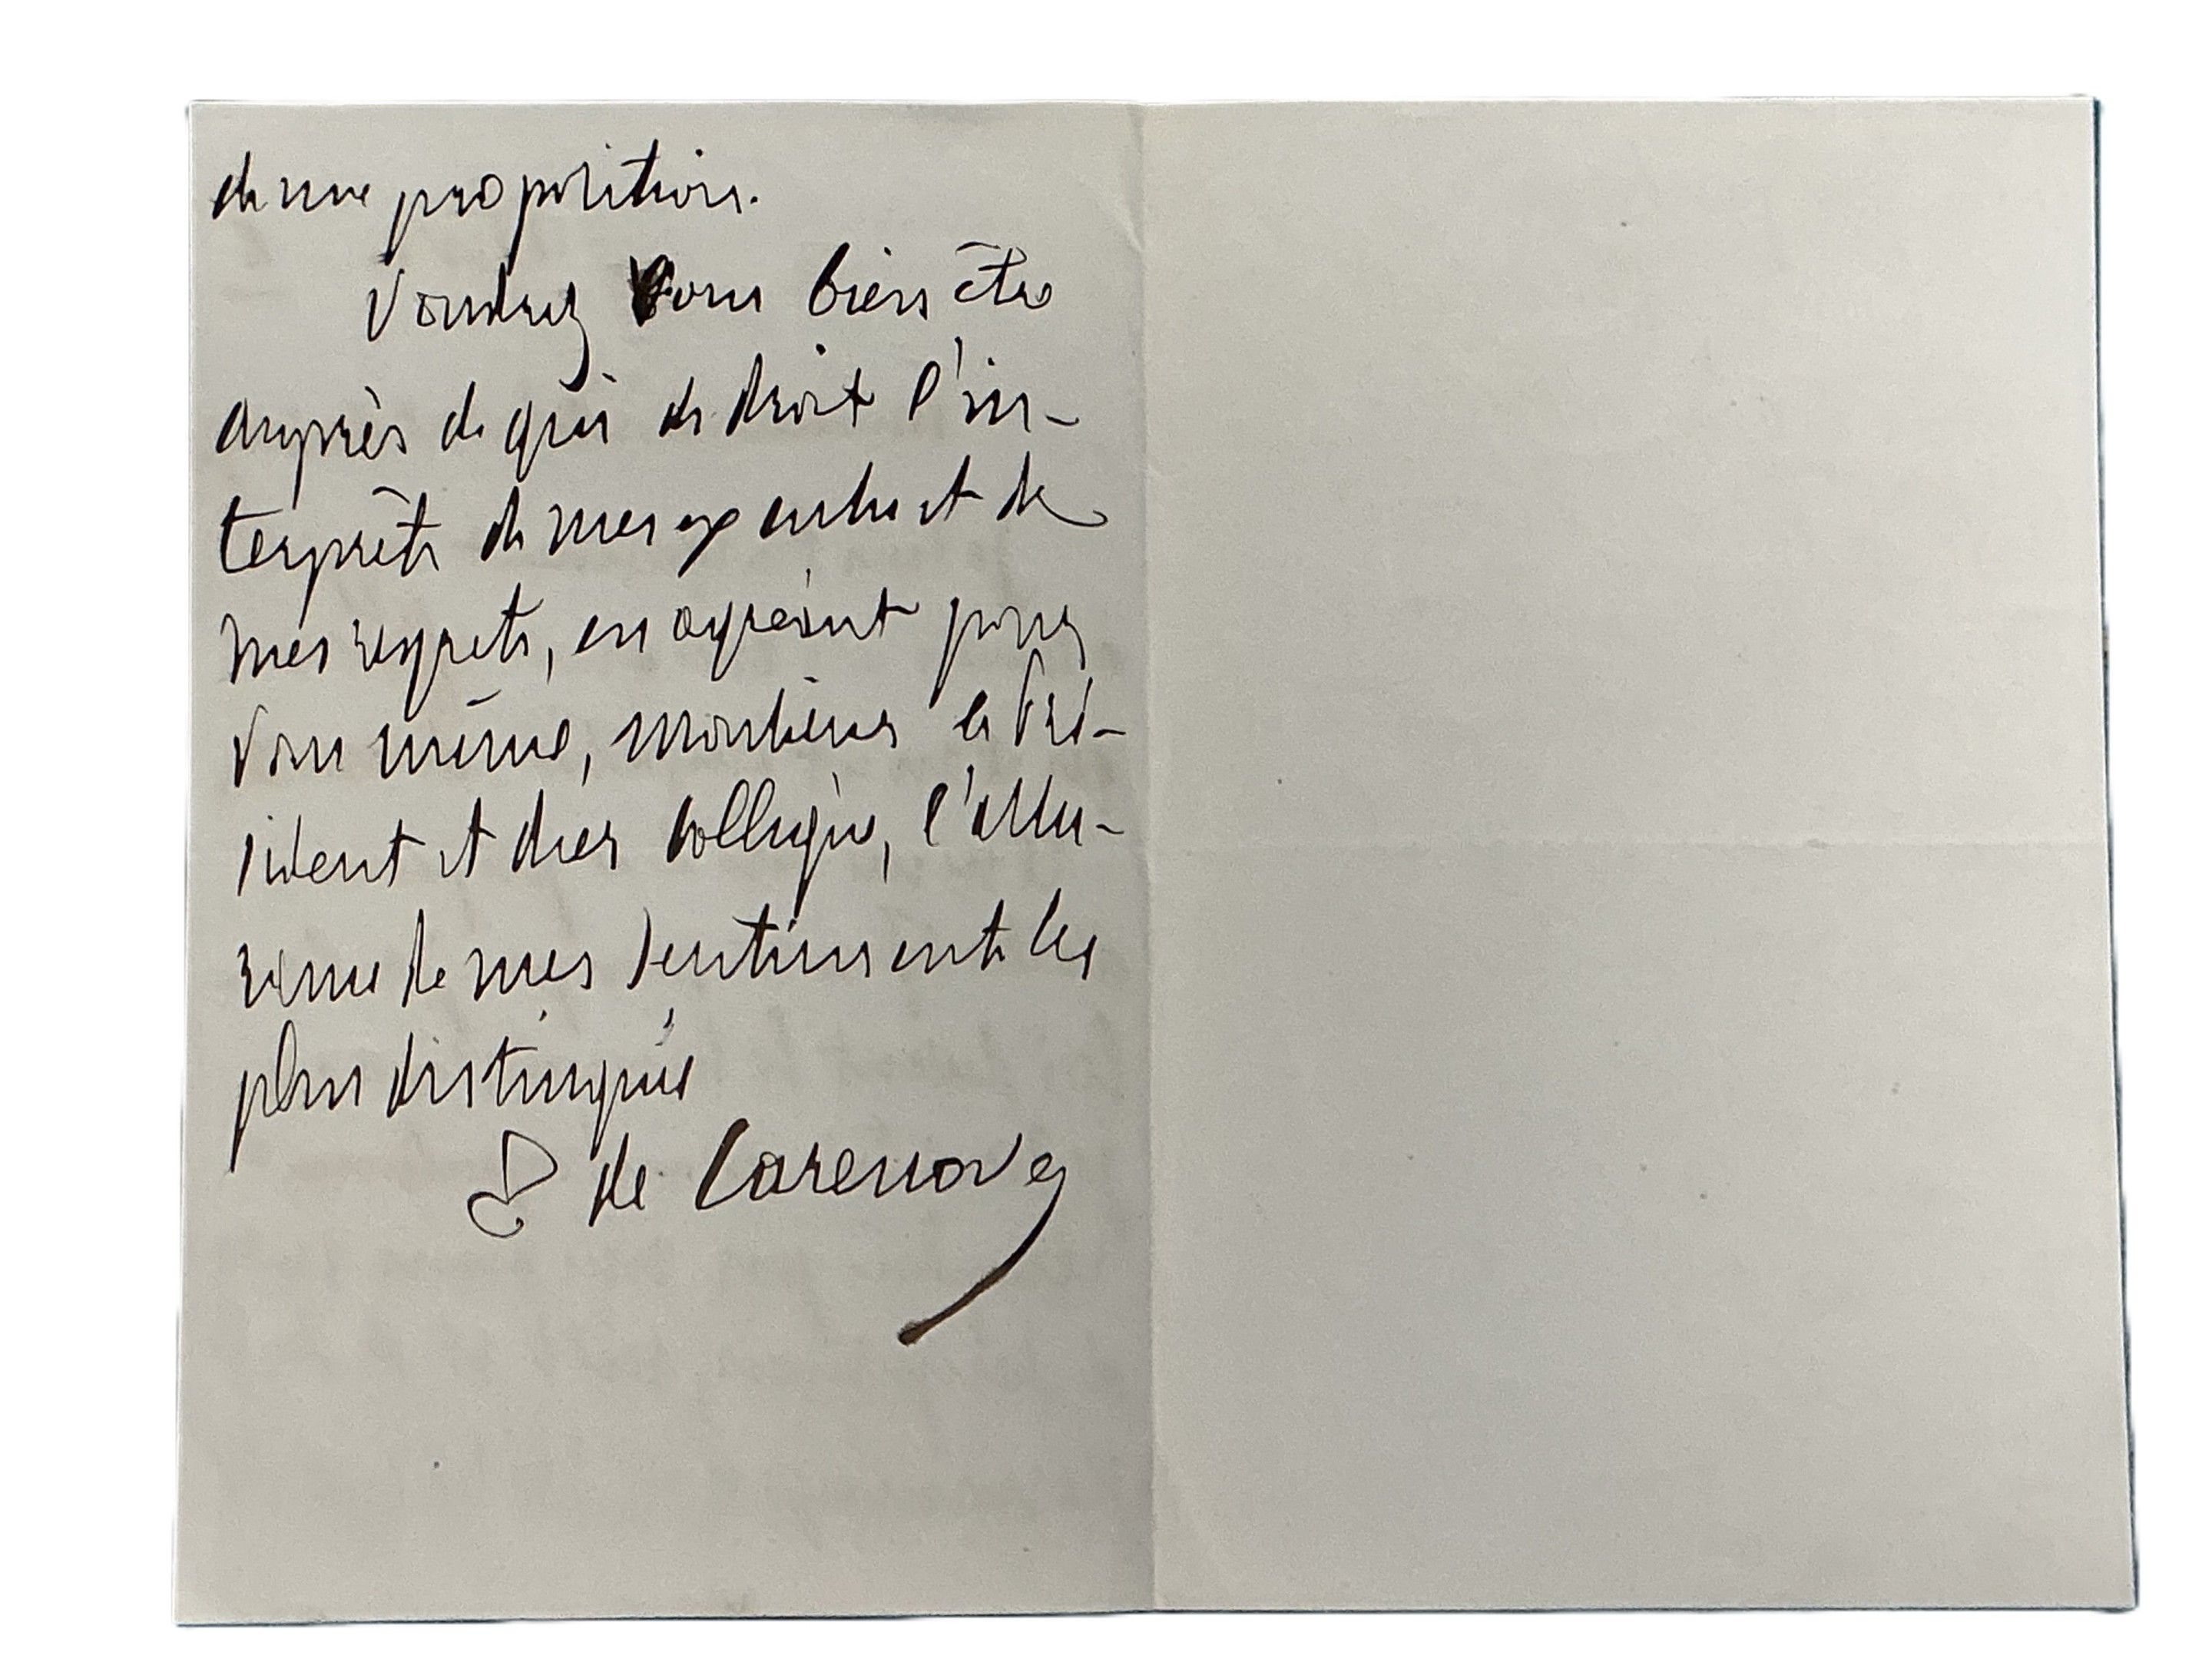 de ma proposition.
Voudrez vous bien être
auprès de qui de droit l'in-
terprète de mes excuses et de
mes regrets, en agréant pour
vous même, Monsieur le Pré-
sident et cher Collègue, l'assu-
rance de mes sentiments les
plus distingués
de Cazenove